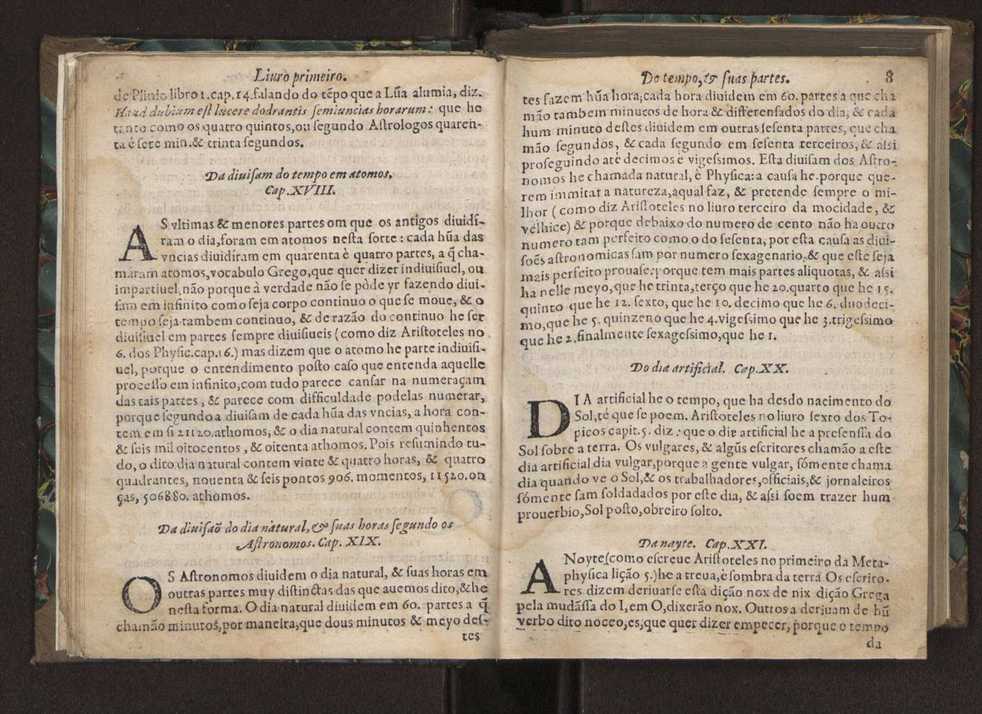 Liuro primeiro.
de Plinio libro 1.cap.14.falando do tẽpo que a Lũa alumia, diz.
Haud dubium est lucere dodrantis semiuncias horarum: que he
tanto como os quatro quintos,ou segundo Astrologos quaren-
ta & sete min.& trinta segundos.
Da diuisam do tempo em atomos,
Cap.XVIII.
AS vltimas & menores partes om que os antigos diuidi-
ram o dia,foram em atomos nesta sorte : cada hũa das
vncias diuidiram em quarenta è quatro partes, a q̃ cha-
màram atomos,vocabulo Grego,que quer dizer indiuisiuel, ou
impartiuel,não porque à verdade não se pòde yr fazendo diui-
sam em infinito como seja corpo continuo o que se moue, & o
tempo seja tambem continuo, & de razão do continuo he ser
diuisiuel em partes sempre diuisiueis ( como diz Aristoteles no
6. dos Physic.cap.16.) mas dizem que o atomo he parte indiuisi-
uel, porque o entendimento posto caso que entenda aquelle
processo em infinito,com tudo parece cansar na numeraçam
das tais partes , & parece com difficuldade podelas numerar,
porque segundo a diuisam de cada hũa das vncias, a hora con-
tem em si 21120.athomos,& o dia natural contem quinhentos
& seis mil oitocentos , & oitenta athomos. Pois resumindo tu-
do, o dito dia natural contem vinte & quatro horas, & quatro
quadrantes, nouenta & seis pontos 906. momentos, 11520.on
ças, 506880. athomos.
Da diuisaõ do dia natural,& suas horas segundo os
Astronomos.Cap. XIX.
OS Astronomos diuidem o dia natural, & suas horas em
outras partes muy distinctas das que auemos dito,& he
nesta forma. O dia natural diuidem em 60. partes a q̃
chamão minutos,por maneira,que dous minutos & meyo des-
tes
Do tempo,& suas partes. 8
tes fazem hũa hora;cada hora diuidem em 60.partes a que cha
mão tambem minutos de hora & differensados do dia, & cada
hum minuto destes diuidem em outras sesenta partes, que cha
mão segundos, & cada segundo em sesenta terceiros, & assi
proseguindo atè decimos e vigessimos. Esta diuisam dos Astro-
nomos he chamada natural, è Physica: a causa he.porque que-
rem immitar a natureza,aqual faz, & pretende sempre o mi-
lhor ( como diz Aristoteles no liuro terceiro da mocidade, &
vélhice) & porque debaixo do numero de cento não ha outro
numero tam perfeito como o do sesenta, por esta causa as diui-
soẽs astronomicas sam por numero sexagenario,& que este seja
mais perfeito prouase:porque tem mais partes aliquotas, & assi
ha nelle meyo,que he trinta,terço que he 20.quarto que he 15.
quinto que he 12. sexto, que he 10. decimo que he 6. duodeci-
mo,que he 5. quinzeno que he 4.vigessimo que he 3.trigessimo
que he 2.finalmente sexagessimo,que he 1.
Do dia artificial. Cap.XX.
DIA artificial he o tempo, que ha desdo nacimento do
Sol,tè que se poem. Aristoteles no liuro sexto dos To-
picos capit.5. diz : que o dia artificial he a presensa do
Sol sobre a terra. Os vulgares, & algũs escritores chamão a este
dia artificial dia vulgar,porque a gente vulgar, sómente chama
dia quando ve o Sol,& os trabalhadores,officiais,& jornaleiros
sómente sam soldadados por este dia, & assi soem trazer hum
prouerbio,Sol posto,obreiro solto.
Da noyte. Cap.XXI.
A Noyte(como escreue Aristoteles no primeiro da Meta-
physica lição 5.)he a treua,è sombra da terra Os escrito-
res dizem deriuarse esta dição nox de nix dição Grega
pela mudãssa do I,em O,dixerão nox. Outros a deriuam de hũ
verbo dito noceo,es,que quer dizer empecer, porque o tempo
da